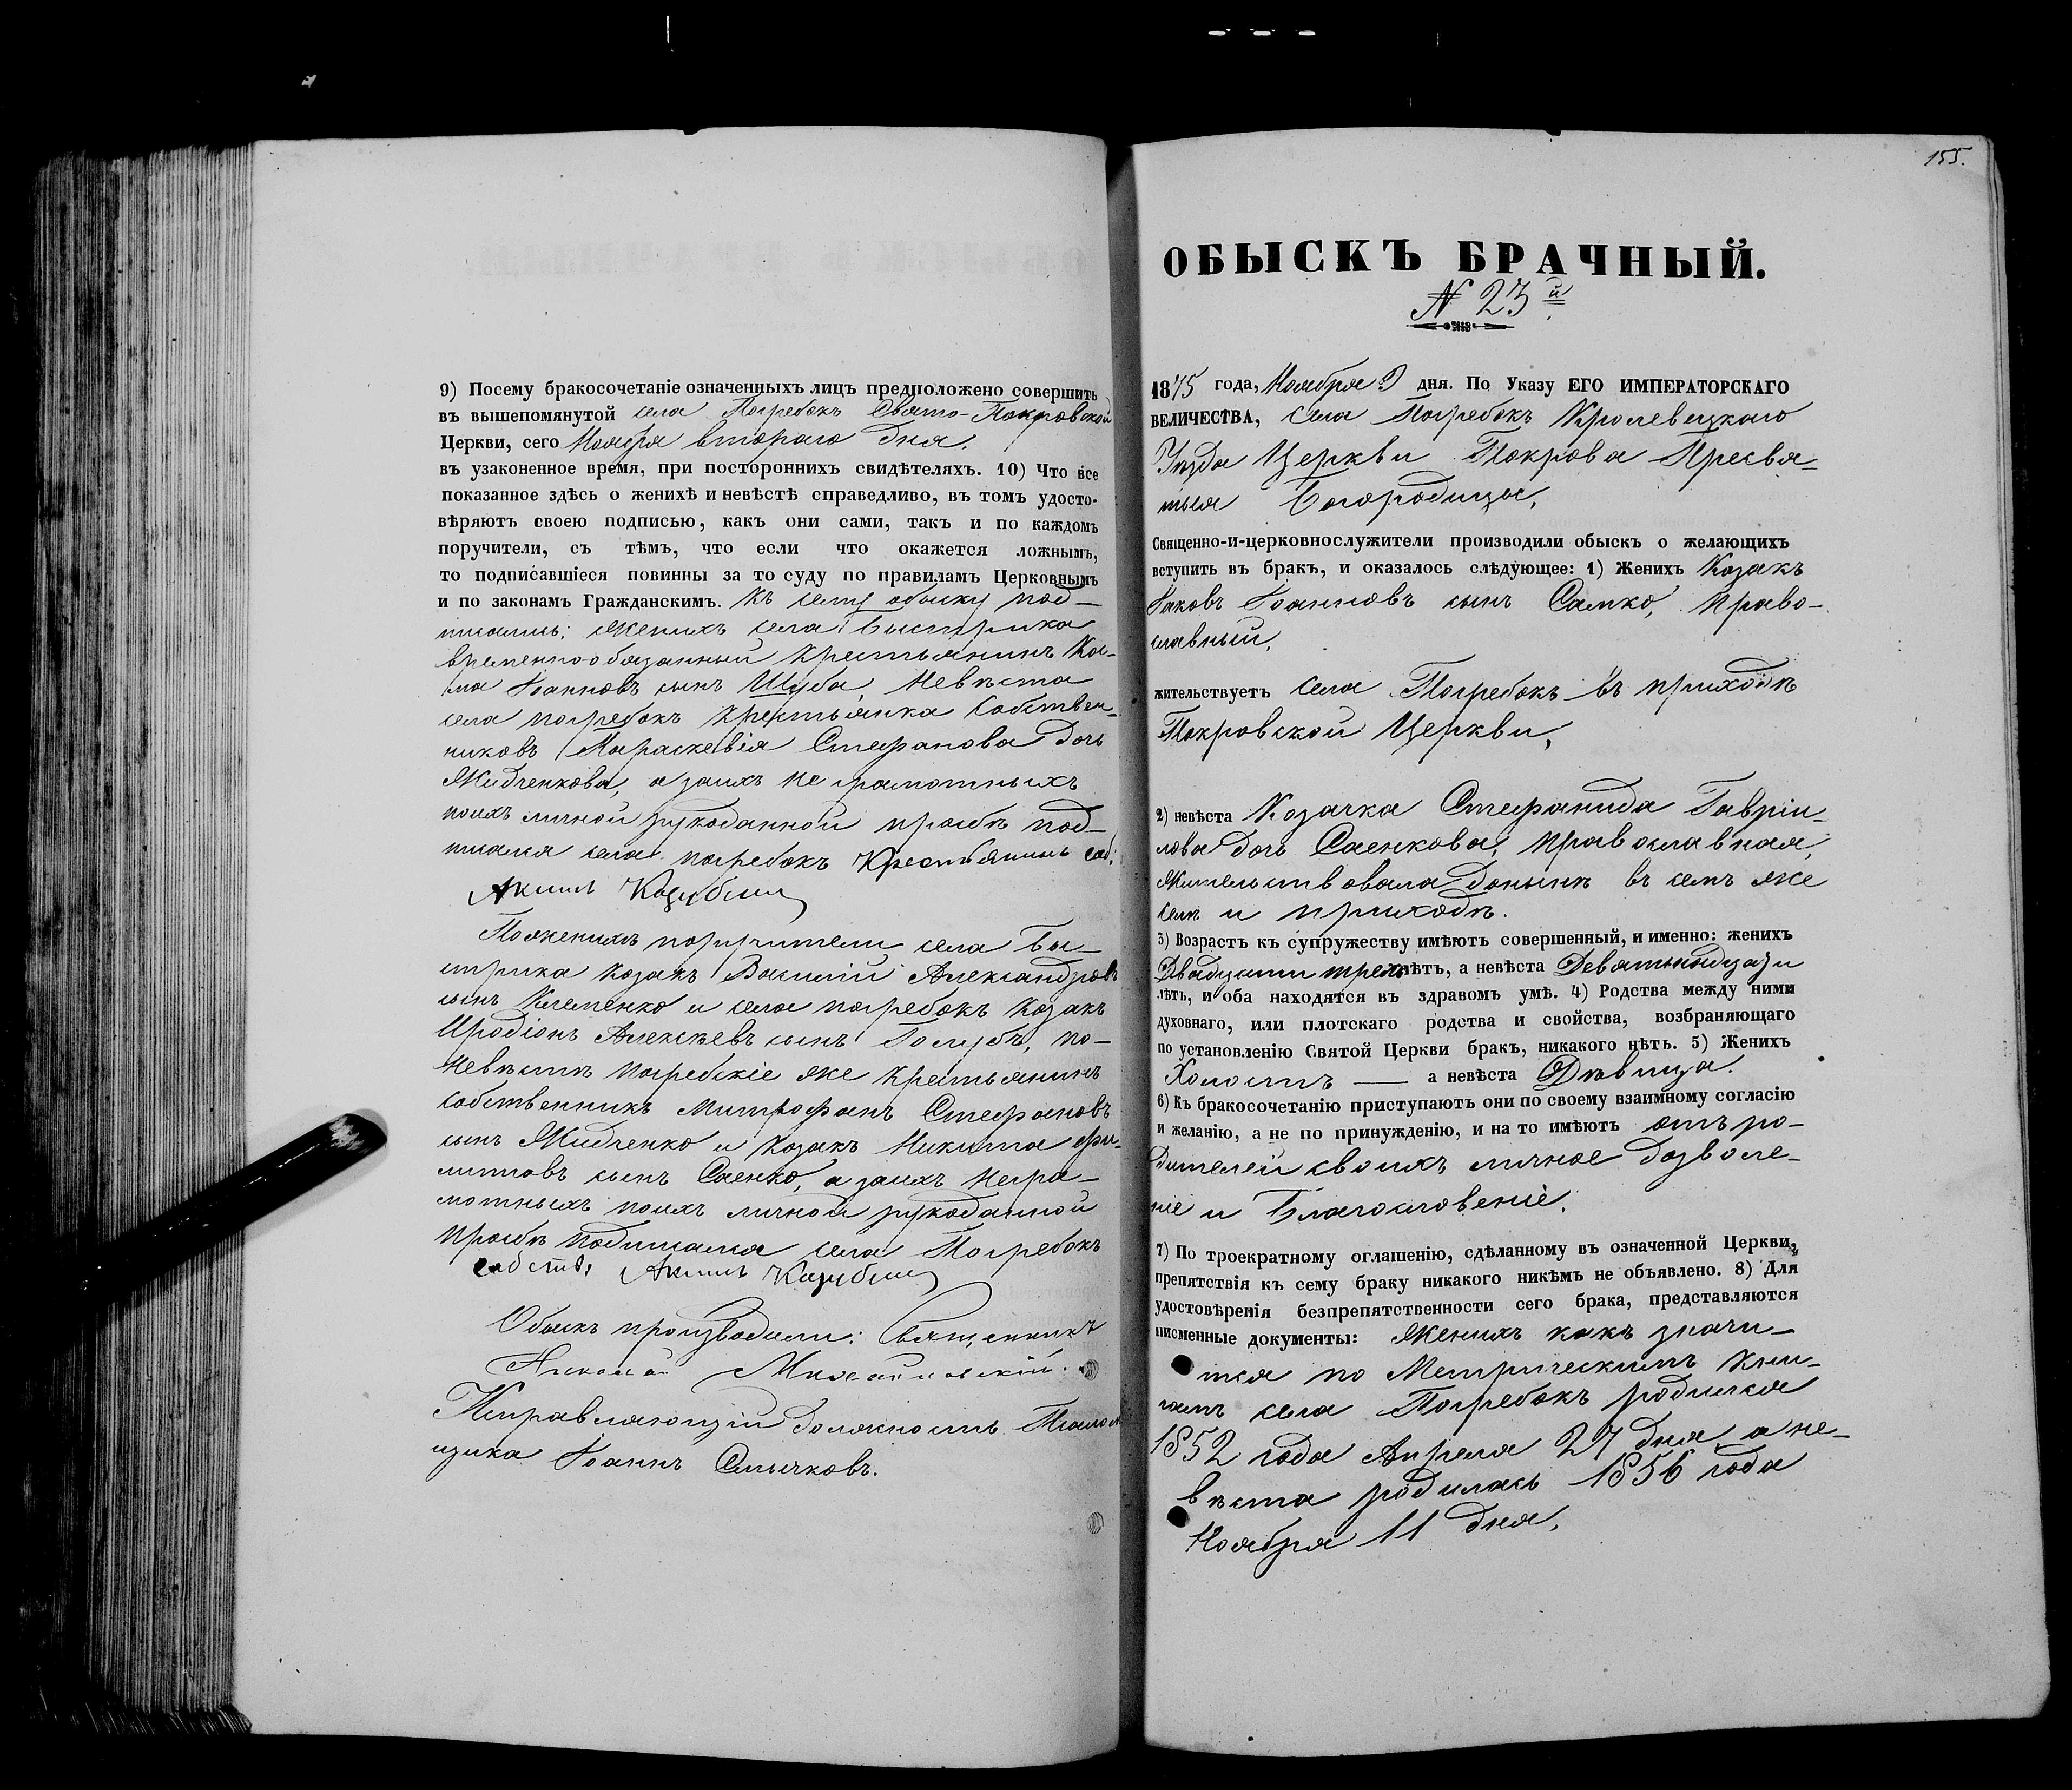 9) Посему бракосочетаніе означенныхъ лицъ предположено совершить
въ вышепомянутой села Погребокъ Свято-Покровской
Церкви, сего Ноября втораго дня.
въ узаконенное время, при постороннихъ свидѣтеляхъ. 10) Что все
показанное здѣсь о женихѣ и невѣстѣ справедливо, въ томъ удосто-
вѣряютъ своею подписью, какъ они сами, такъ и по каждомъ
поручители, съ тѣмъ, что если что окажется ложнымъ,
то подписавшіеся повинны за то суду по правиламъ Церковнымъ
и по законамъ Гражданскимъ. Къ сему обыску под-
писались: Женихъ села Быстрика
временно-обязанный крестьянинъ Кос-
ма Іоанновъ сынъ Шуба, Невѣста
села погребокъ крестьянка Собствен-
никовъ Параскевія Стефанова дочь
Жидченкова, а за ихъ не грамотныхъ
по ихъ личной рукоданной прозьбѣ под-
писался села погребокъ Крестьянинъ соб:
Акимъ
По женихѣ поручители села Бы-
стрика козакъ Василій Александровъ
сынъ Клеменко и села погребокъ козакъ
Иродіонъ Алексѣевъ сынъ Голубъ, по-
Невѣстѣ погребскіе же крестьянинъ
собственникъ Митрофанъ Стефановъ
сынъ Жидченко и козакъ Никита Фи-
липповъ сынъ Саенко, а за ихъ негра-
мотныхъ по ихъ личной рукоданной
прозьбѣ подписался села Погребокъ
собств: Акимъ
Обыскъ производили: Священникъ
Николай Михайловскій.
Исправляющій должность Псалом
щика Іоаннъ Смычковъ.
155.
ОБЫСКЪ БРАЧНЫЙ.
N 23й
1875 года, Ноября 9 дня. По Указу ЕГО ИМПЕРАТОРСКАГО
ВЕЛИЧЕСТВА, села Погребокъ Кролевецкаго
Уѣзда Церкви Покрова Пресвя-
тыя Богородицы,
Священно-и-церковнослужители производили обыскъ о желающихъ
вступить въ бракъ, и оказалось слѣдующее: 1) Женихъ Козакъ
Іаковъ Іоанновъ сынъ Самко, право-
славный,
жительствуетъ села Погребокъ въ приходѣ
Покровской Церкви,
2) невѣста Козачка Стефанида Гавріи-
лова дочь Саенкова, православная,
жительствовала донынѣ въ семъ же
селѣ и приходѣ.
3) Возрастъ къ супружеству имѣютъ совершенный, и именно: женихъ
Двадцати трехъ лѣтъ, а невѣста Девятьнадцати
лѣтъ, и оба находятся въ здравомъ умѣ. 4) Родства между ними
духовнаго, или плотскаго родства и свойства, возбраняющаго
по установленію Святой Церкви бракъ, никакого нѣтъ. 5) Женихъ
Холостъ — а невѣста Дѣвица.
6) Къ бракосочетанію приступаютъ они по своему взаимному согласію
и желанію, а не по принужденію, и на то имѣютъ отъ ро-
дителей своихъ личное дозволе-
ніе и Благословеніе.
7) По троекратному оглашенію, сдѣланному въ означенной Церкви,
препятствія къ сему браку никакого никѣмъ не объявлено. 8) Для
удостовѣренія безпрепятственности сего брака, представляются
писменные документы: Женихъ какъ значи-
тся по Метрическимъ Кни-
гамъ села Погребокъ родился
1852 года Апреля 27 дня а не-
вѣста родилась 1856 года
Ноября 11 дня.